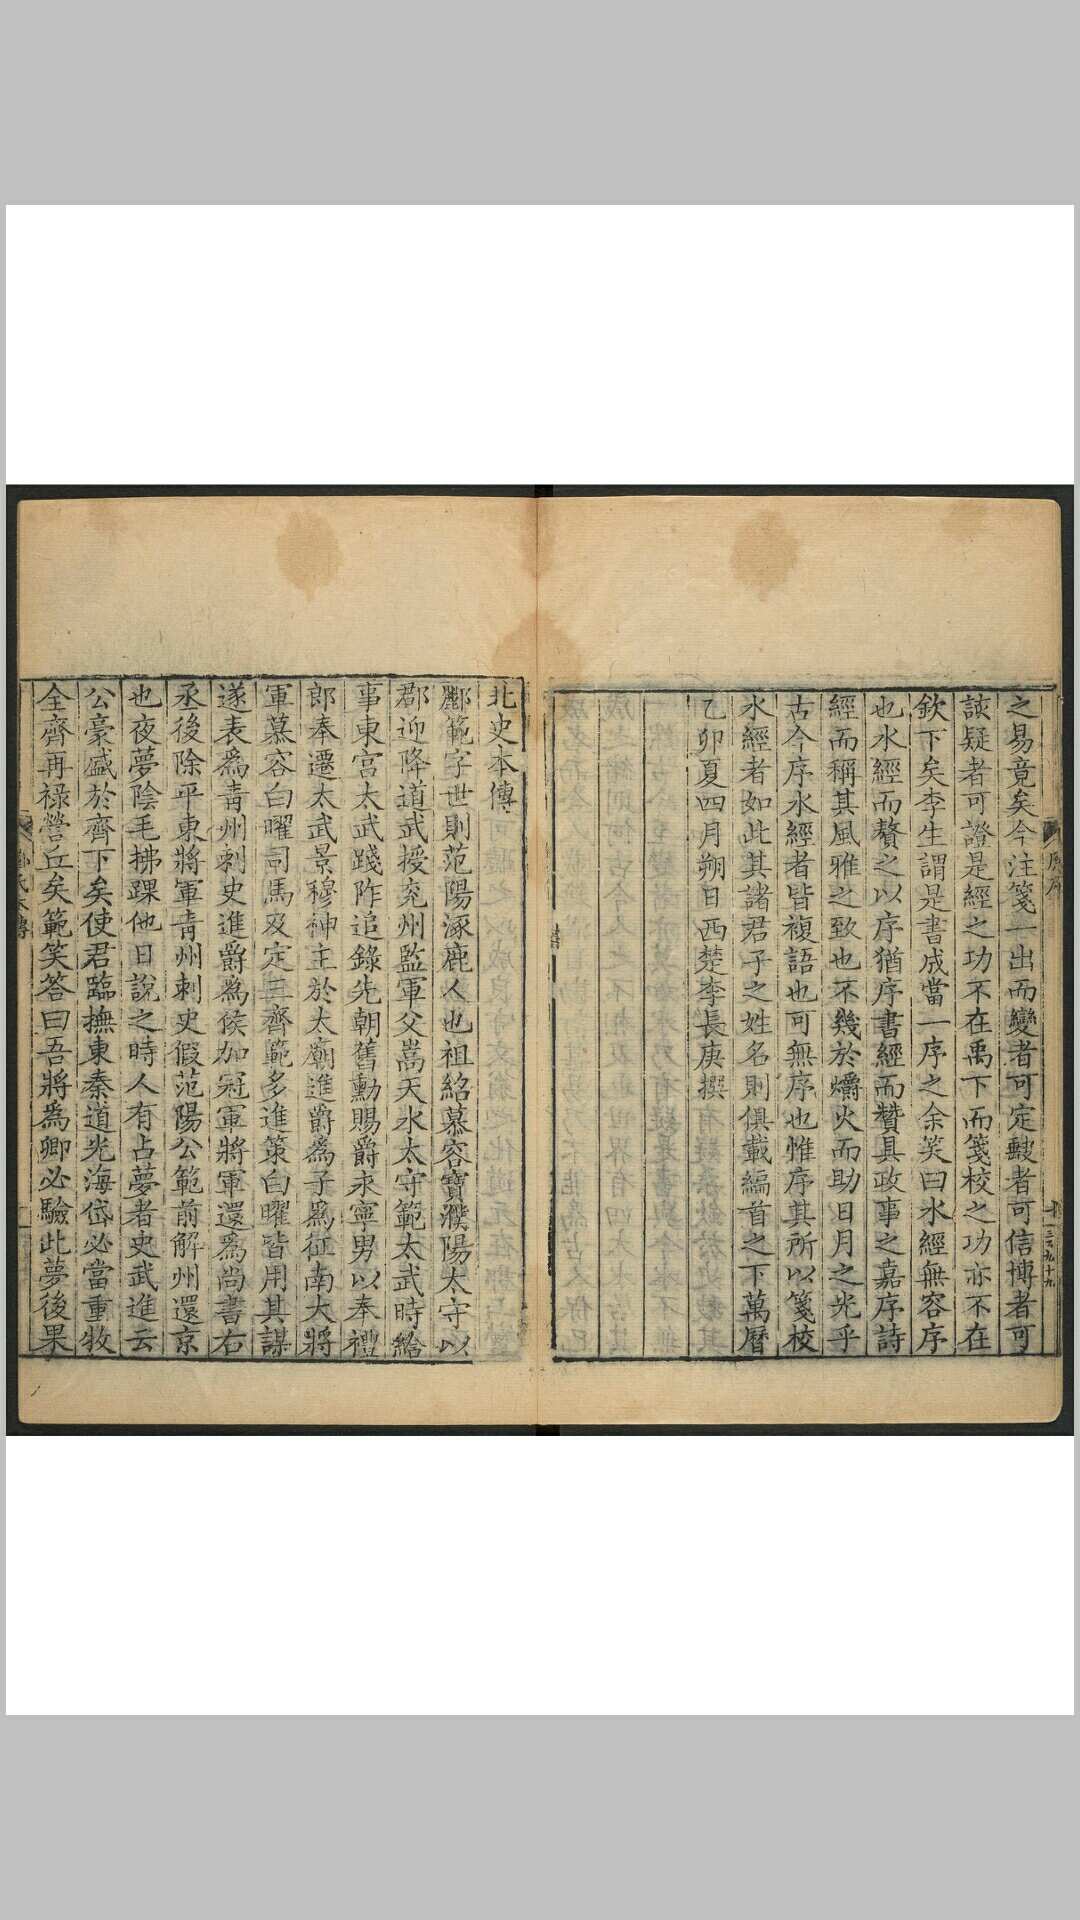 之易竟矣今注箋一出而變者可定皸者可信博者可
該疑者可證是經之功不在禹下而箋校之功亦不在
欽下矣李生謂是書成當一序之余笑曰水經無容序
也水經而贅之以序猶序書經而贊具政事之嘉序詩
經而稱其風雅之致也不幾於爝火而助日月之光乎
古今序水經者皆複語也可無序也惟序其所以箋校
水經者如此其諸君子之姓名則俱載編首之下萬曆
乙卯夏四月朔日西楚李長庚撰
北史本傳
酈範字世則范陽涿鹿人也祖紹慕容寶濮陽太守以
郡迎降道武授兗州監軍父嵩天水太守範太武時給
事東宮太武踐阼追錄先朝舊勳賜爵永寧男以奉禮
郎奉遷太武景穆神主於太廟進爵爲子爲征南大將
軍慕容白曜司馬及定三齊範多進策白曜皆用其謀
遂表爲青州刺史進爵爲侯加冠軍將軍還爲尚書右
丞後除平東將軍青州刺史假范陽公範前解州還京
也夜夢陰毛拂踝他日說之時人有占夢者史武進云
公豪盛於齊下矣使君臨撫東秦道光海岱必當重牧
全齊再祿營丘矣範笑答曰吾將爲卿必驗此夢後果